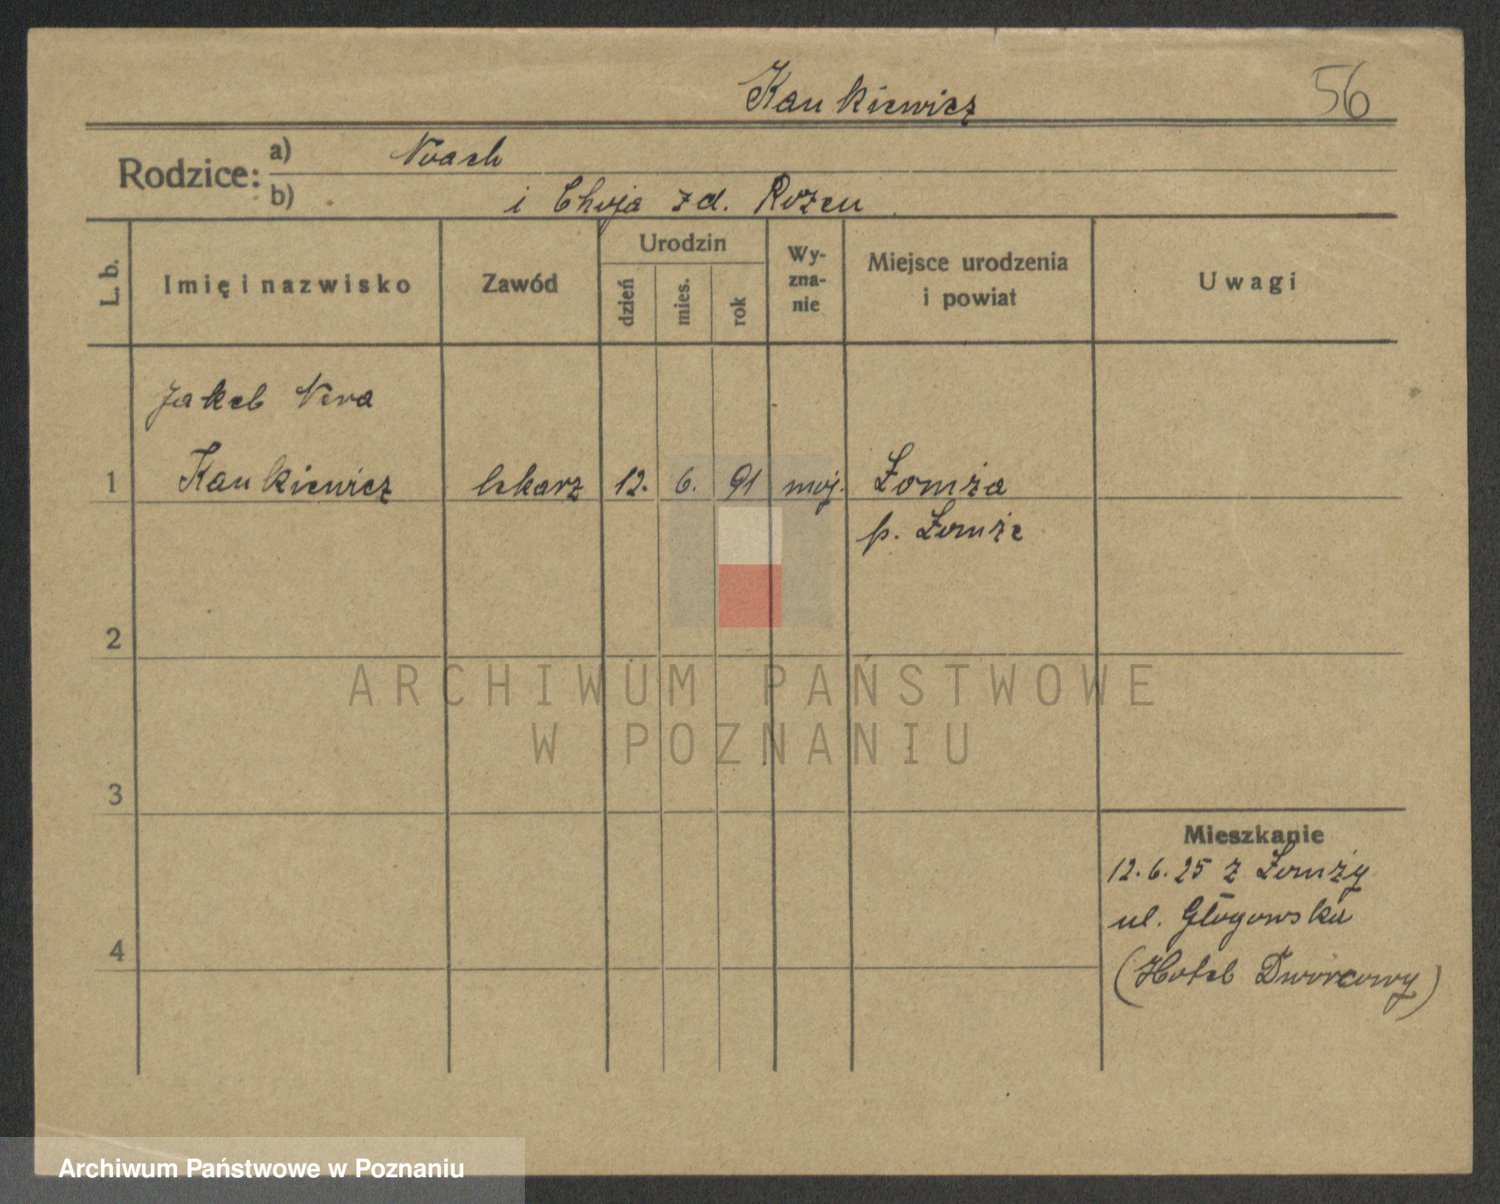 Kaukiewicz 56
Rodzice: a) Noach
b) i Choja zd. Rozen
L. b. Imię i nazwisko Zawód Urodzin dzień mies. rok Wy-zna-nie Miejsce urodzenia i powiat Uwagi
Jakob
1 Kaukiewicz lekarz 12. 6. 91 moj. Łomża
p. Łomże
2
ARCHIWUM PAŃSTWOWE
W POZNANIU
3
Mieszkanie
12.6.25 z Łomży
ul. Głogowska
4
(Hotel Dworcowy)
Archiwum Państwowe w Poznaniu